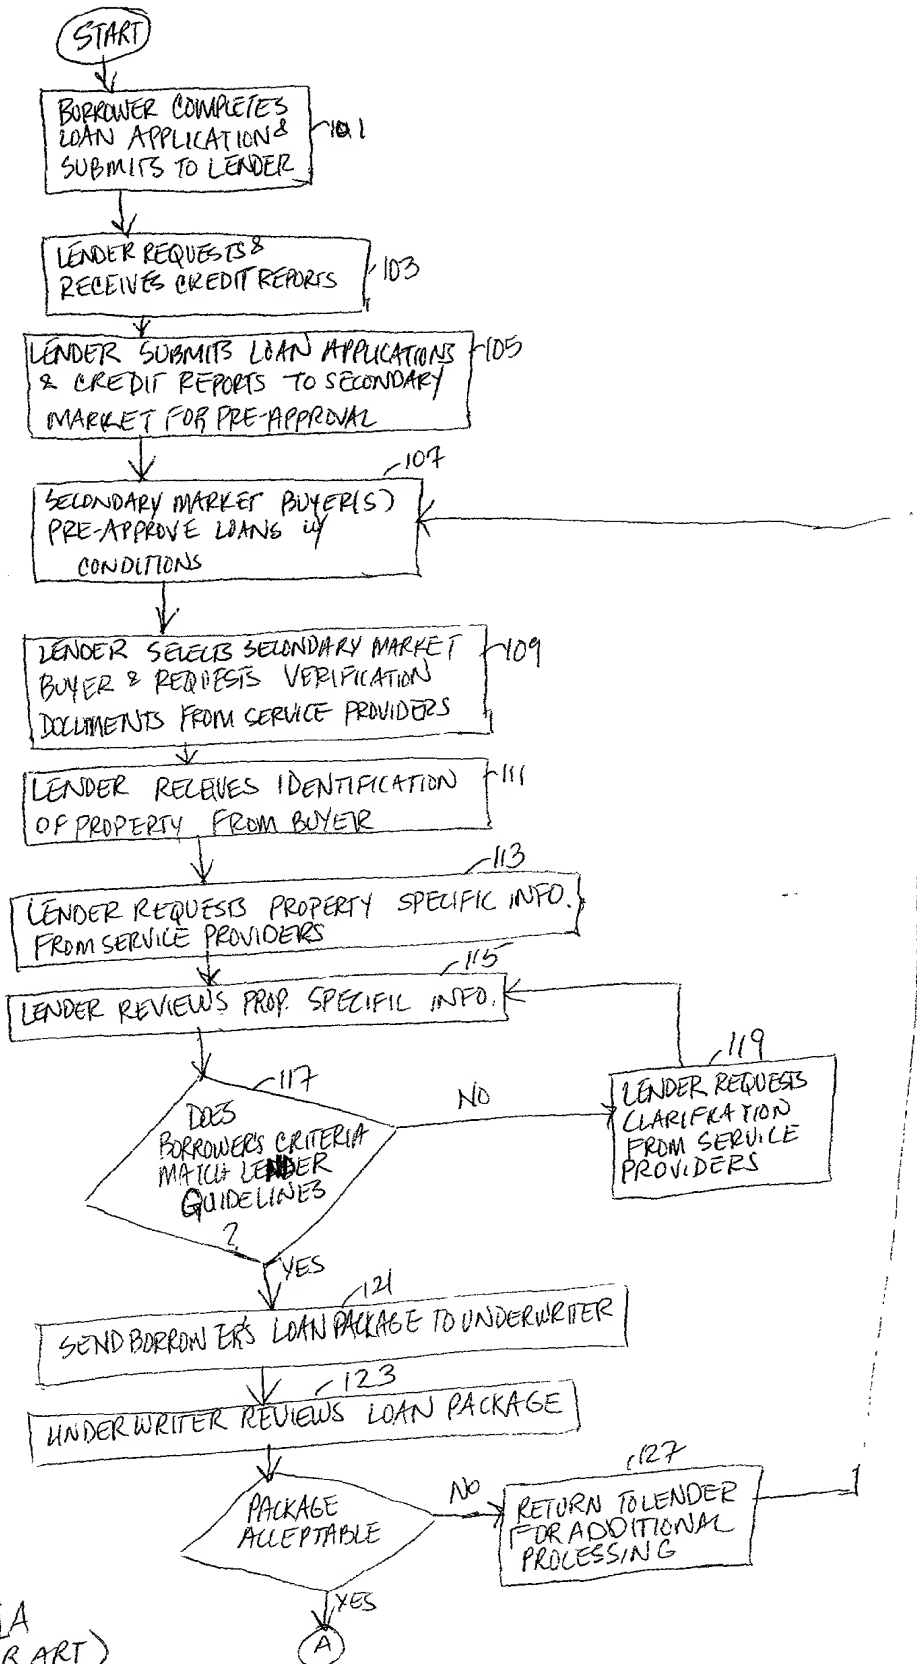 START
BORROWER COMPLETES
LOAN APPLICATION &
SUBMITS TO LENDER
101
LENDER REQUESTS &
RECEIVES CREDIT REPORTS
103
LENDER SUBMITS LOAN APPLICATIONS
& CREDIT REPORTS TO SECONDARY
MARKET FOR PRE-APPROVAL
105
107
SECONDARY MARKET BUYER(S)
PRE-APPROVE LOANS w/
CONDITIONS
LENDER SELECTS SECONDARY MARKET
BUYER & REQUESTS VERIFICATION
DOCUMENTS FROM SERVICE PROVIDERS
109
LENDER RECEIVES IDENTIFICATION
OF PROPERTY FROM BUYER
111
113
LENDER REQUESTS PROPERTY SPECIFIC INFO.
FROM SERVICE PROVIDERS
115
LENDER REVIEWS PROP. SPECIFIC INFO.
117
DOES
BORROWER'S CRITERIA
MATCH LENDER
GUIDELINES
?
NO
119
LENDER REQUESTS
CLARIFICATION
FROM SERVICE
PROVIDERS
YES
121
SEND BORROWER'S LOAN PACKAGE TO UNDERWRITER
123
UNDERWRITER REVIEWS LOAN PACKAGE
PACKAGE
ACCEPTABLE
NO
127
RETURN TO LENDER
FOR ADDITIONAL
PROCESSING
YES
A
1A
R ART)